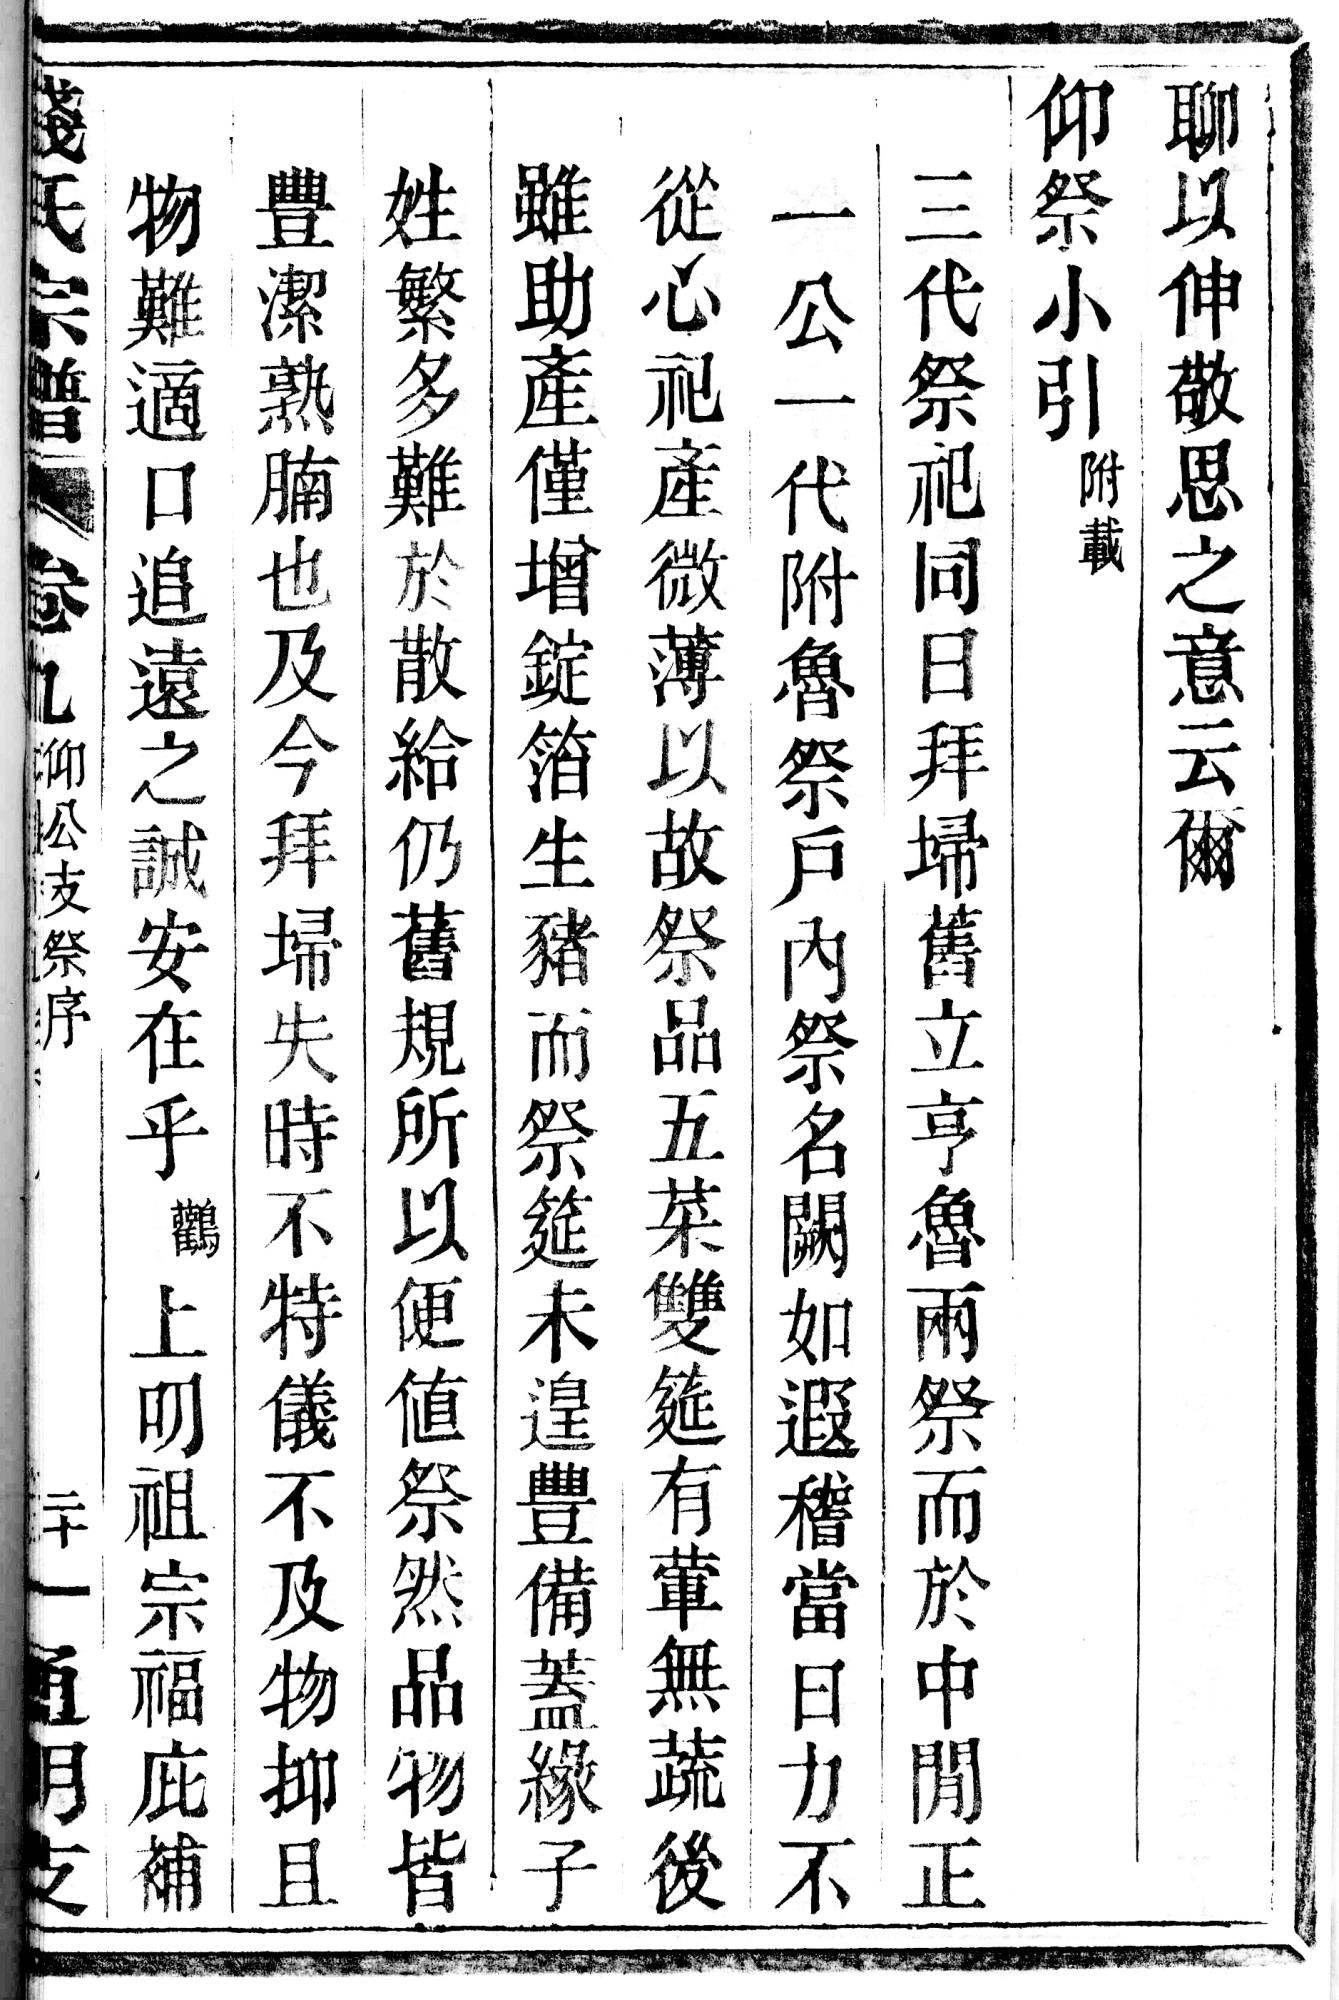 聊以伸敬思之意云爾
仰祭小引附載
三代祭祀同日拜埽舊立亨魯兩祭而於中閒正
一公一代附魯祭戶內祭名闕如遐稽當日力不
從心祀產微薄以故祭品五菜雙筵有葷無蔬後
雖助產僅增錠箔生豬而祭筵未遑豐備蓋緣子
姓繁多難於散給仍舊規所以便値祭然品物皆
豐潔熟腩也及今拜埽失時不特儀不及物抑且
物難適口追遠之誠安在乎鸛上叨祖宗福庇補
錢氏宗譜 卷九 仰公支祭序 二十一 通明支